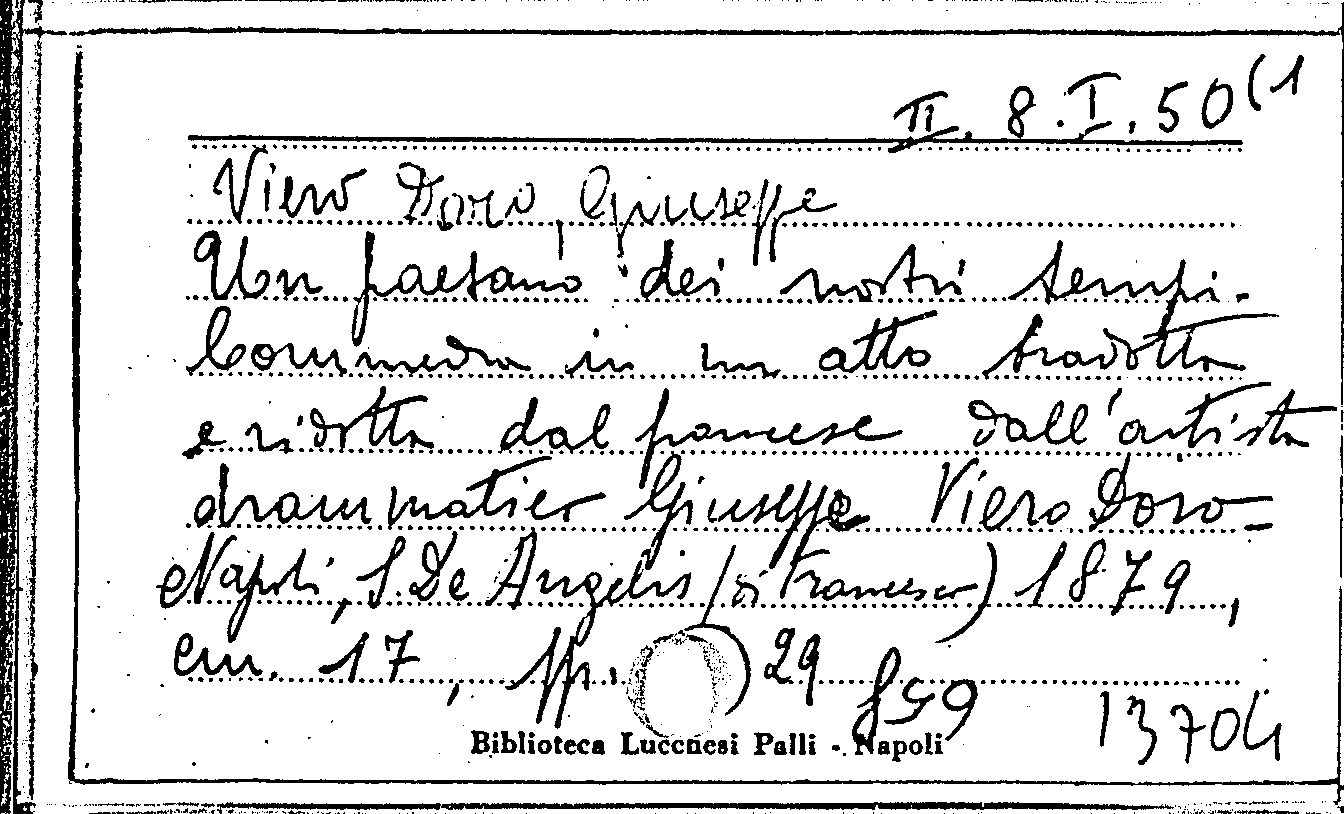 II. 8. I. 50(1
Viero Doro, Giuseppe
Un paesano dei nostri tempi.
Commedia in un atto tradotta
e ridotta dal francese dall'artista
drammatico Giuseppe Viero Doro =
Napoli, S. De Angelis (di Francesco) 1879,
cm. 17, pp. ) 29
13704
Biblioteca Lucchesi Palli - Napoli